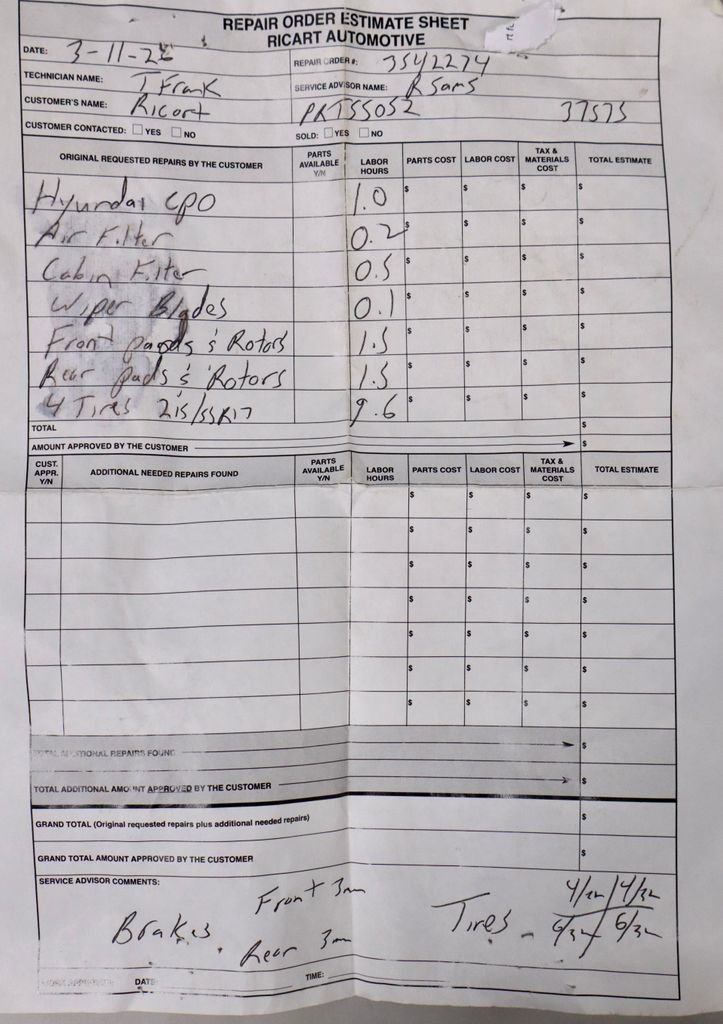 REPAIR ORDER ESTIMATE SHEET
RICART AUTOMOTIVE
DATE: 3-11-22 REPAIR ORDER #: 3542274
TECHNICIAN NAME: T Frank SERVICE ADVISOR NAME: R Sams
CUSTOMER'S NAME: Ricart PRT55052 37575
CUSTOMER CONTACTED: YES NO SOLD: YES NO
ORIGINAL REQUESTED REPAIRS BY THE CUSTOMER PARTS AVAILABLE Y/N LABOR HOURS PARTS COST LABOR COST TAX & MATERIALS COST TOTAL ESTIMATE
Hyundai CPO 1.0 $ $ $ $
Air Filter 0.2 $ $ $ $
Cabin Filter 0.5 $ $ $ $
Wiper Blades 0.1 $ $ $ $
Front pads & Rotors 1.5 $ $ $ $
Rear pads & Rotors 1.5 $ $ $ $
4 Tires 215/55R17 9.6 $ $ $ $
TOTAL $
AMOUNT APPROVED BY THE CUSTOMER $
CUST. APPR. Y/N ADDITIONAL NEEDED REPAIRS FOUND PARTS AVAILABLE Y/N LABOR HOURS PARTS COST LABOR COST TAX & MATERIALS COST TOTAL ESTIMATE
$ $ $ $
$ $ $ $
$ $ $ $
$ $ $ $
$ $ $ $
$ $ $ $
$ $ $ $
TOTAL ADDITIONAL REPAIRS FOUND $
TOTAL ADDITIONAL AMOUNT APPROVED BY THE CUSTOMER $
GRAND TOTAL (Original requested repairs plus additional needed repairs) $
GRAND TOTAL AMOUNT APPROVED BY THE CUSTOMER $
SERVICE ADVISOR COMMENTS:
Front 3mm 4/32 4/32
Brakes Tires - 6/32 6/32
Rear 3m
DATE: TIME: